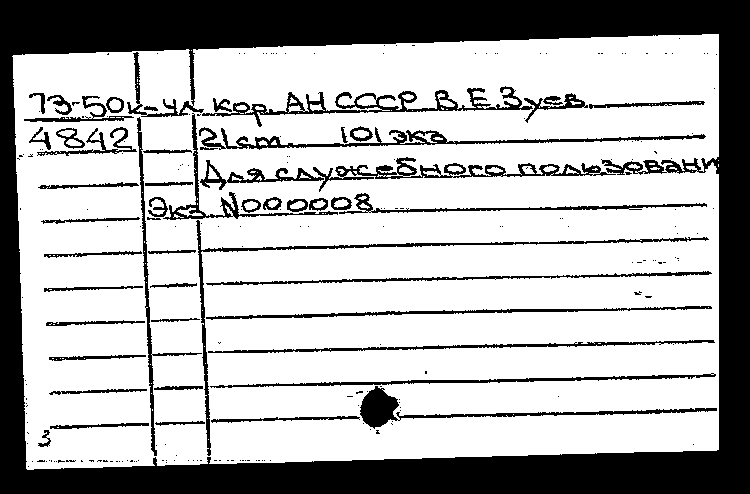 73-50к чл. кор. АН СССР В.Е.Зуев.
4842 21 cm. 101 экз
Для служебного пользовани
Экз. N000008.
3